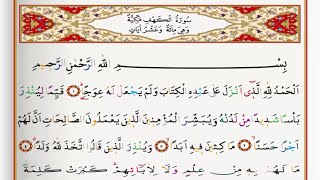 سُورَةُ الْكَهْفِ مَكِّيَّةٌ
وَهِيَ مِائَةٌ وَعَشْرُ اٰيَاتٍ
بِسْمِ اللّٰهِ الرَّحْمٰنِ الرَّحِيمِ
اَلْحَمْدُ لِلّٰهِ الَّذٖٓي اَنْزَلَ عَلٰى عَبْدِهِ الْكِتَابَ وَلَمْ يَجْعَلْ لَهُ عِوَجًا ۞ قَيِّمًا لِيُنْذِرَ
بَأْسًا شَدٖيدًا مِنْ لَدُنْهُ وَيُبَشِّرَ الْمُؤْمِنٖينَ الَّذٖينَ يَعْمَلُونَ الصَّالِحَاتِ اَنَّ لَهُمْ
اَجْرًا حَسَنًا ۞ مَاكِثٖينَ فٖيهِ اَبَدًا ۞ وَيُنْذِرَ الَّذٖينَ قَالُوا اتَّخَذَ اللّٰهُ وَلَدًا ۞
مَا لَهُمْ بِهٖ مِنْ عِلْمٍ وَلَا لِاٰبَٓائِهِمْ كَبُرَتْ كَلِمَةً